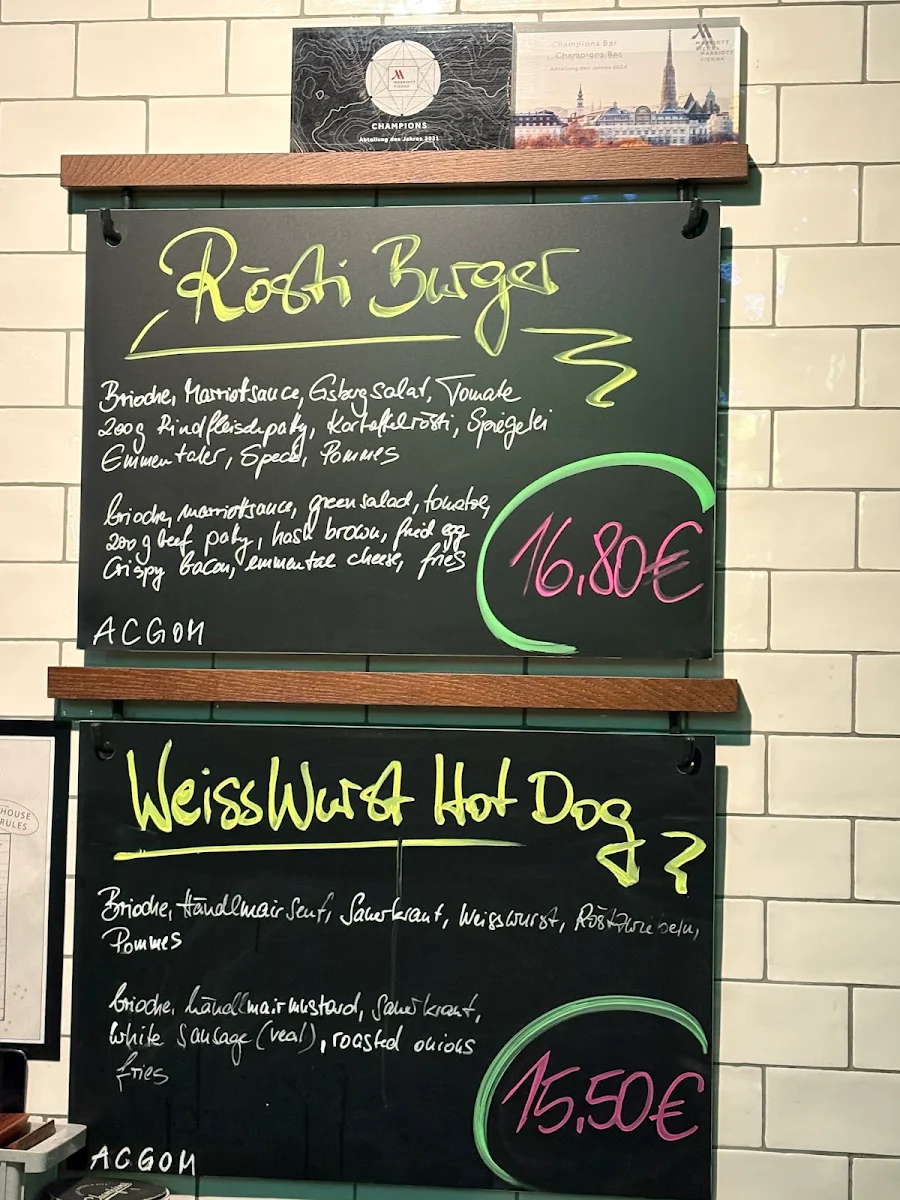 MARRIOTT
VIENNA
CHAMPIONS
Abteilung des Jahres 2021
Champions Bar
Champions Bar
Abteilung des Jahres 2024
MARRIOTT
VIENNA
MARRIOTT
VIENNA
Rösti Burger
Brioche, Marriotsauce, Eisbergsalat, Tomate
200g Rindfleischpatty, Kartoffelrösti, Spiegelei
Emmentaler, Speck, Pommes
brioche, marriotsauce, green salad, tomatoe,
200g beef patty, hash brown, fried egg
Crispy bacon, emmentae cheese, fries
16,80€
ACGOM
WeissWurst Hot Dog
Brioche, Händlmair Senf, Sauerkraut, Weisswurst, Röstzwiebeln,
Pommes
brioche, händlmair mustard, sauerkraut,
white sausage (veal), roasted onions
fries
15,50€
ACGOM
HOUSE
RULES